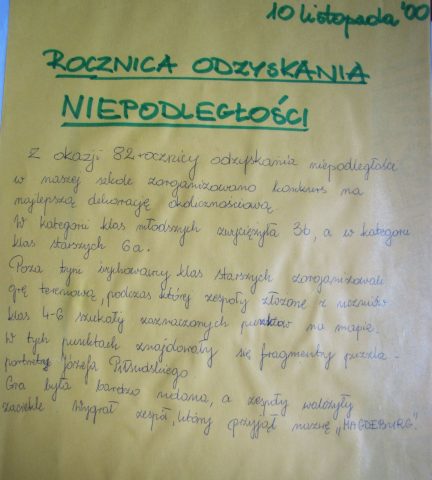 10 listopada '00
ROCZNICA ODZYSKANIA
NIEPODLEGŁOŚCI
Z okazji 82 rocznicy odzyskania niepodległości
w naszej szkole zorganizowano konkurs na
najlepszą dekorację okolicznościową.
W kategorii klas młodszych zwyciężyła 3b, a w kategorii
klas starszych 6a.
Poza tym wychowawcy klas starszych zorganizowali
grę terenową, podczas której zespoły złożone z uczniów
klas 4-6 szukały zaznaczonych punktów na mapie.
W tych punktach znajdowały się fragmenty puzzla -
portretu Józefa Piłsudskiego
Gra była bardzo udana, a zespoły walczyły
zaciekle. Wygrał zespół, który przyjął nazwę „MAGDEBURG".